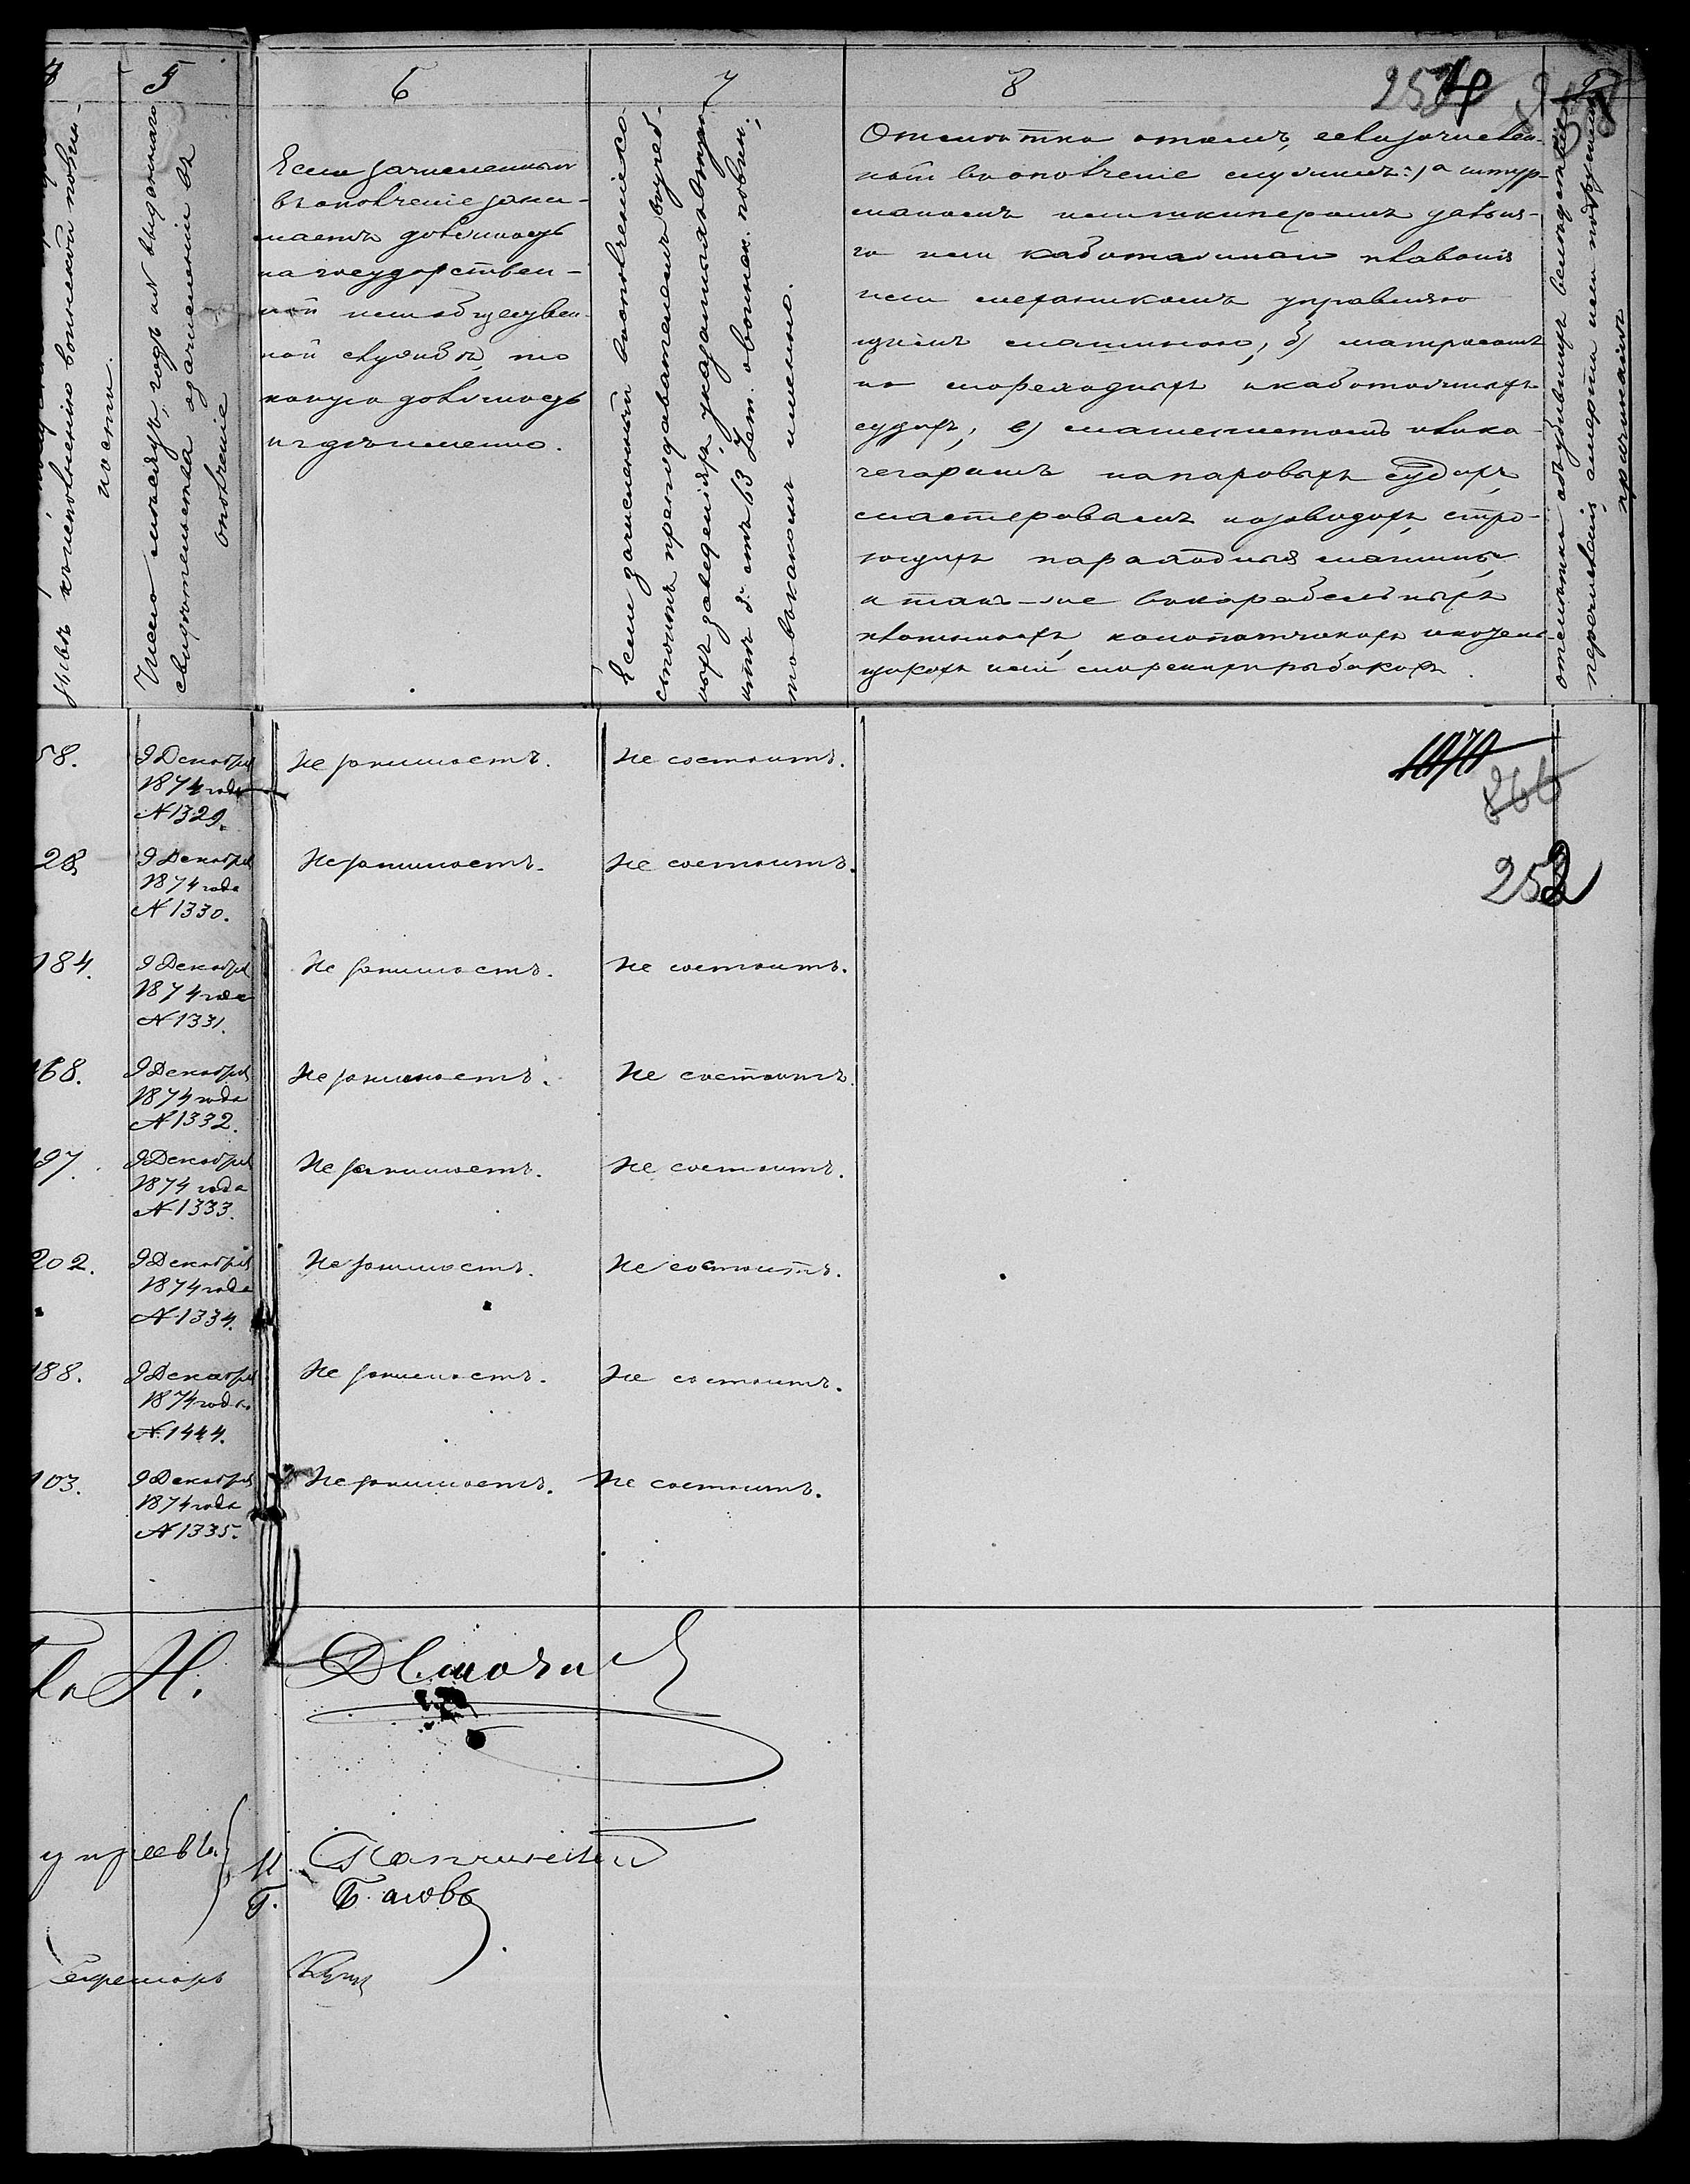 5
6
7
8
254
зывъ къ исполненію воинской повин-
ности.
Число, мѣсяцъ, годъ и № выданнаго
свидѣтельства о зачисленіи въ
ополченіе
Если зачисленный
въ ополченіе зани-
маетъ должность
на государствен-
ной или обществен-
ной службѣ, то
какую должность
и гдѣ именно.
Если зачисленный въ ополченіе со-
стоитъ преподавателемъ въ учеб-
ныхъ заведеніяхъ, указанныхъ въ
ст. 63 Уст. о воинск. повин.,
то въ какомъ именно.
Отмѣтка о томъ, если зачислен-
ный въ ополченіе служитъ: а) штур-
маномъ или шкиперомъ дальня-
го или каботажнаго плаванія
или механикомъ управляю-
щимъ машиною, б) матросомъ
на мореходныхъ и каботажныхъ
судахъ, в) машинистомъ или ко-
чегаромъ на паровыхъ судахъ,
мастеровымъ на заводахъ, стро-
ющихъ пароходныя машины,
а такъ-же въ корабельныхъ
плотникахъ, конопатчикахъ
или морскихъ рыбакахъ.
отмѣтка объ убывшихъ вслѣдствіе
перечисленія, смерти или по другимъ
причинамъ
58.
9 Декабря
1874 года
№ 1329.
Не занимаетъ.
Не состоитъ.
1070
866
28
9 Декабря
1874 года
№ 1330.
Не занимаетъ.
Не состоитъ.
252
184.
9 Декабря
1874 года
№ 1331.
Не занимаетъ.
Не состоитъ.
168.
9 Декабря
1874 года
№ 1332.
Не занимаетъ.
Не состоитъ.
197.
9 Декабря
1874 года
№ 1333.
Не занимаетъ.
Не состоитъ.
202.
9 Декабря
1874 года
№ 1334.
Не занимаетъ.
Не состоитъ.
188.
9 Декабря
1874 года
№ 1444.
Не занимаетъ.
Не состоитъ.
103.
9 Декабря
1874 года
№ 1335.
Не занимаетъ.
Не состоитъ.
Н.
управы
Секретарь